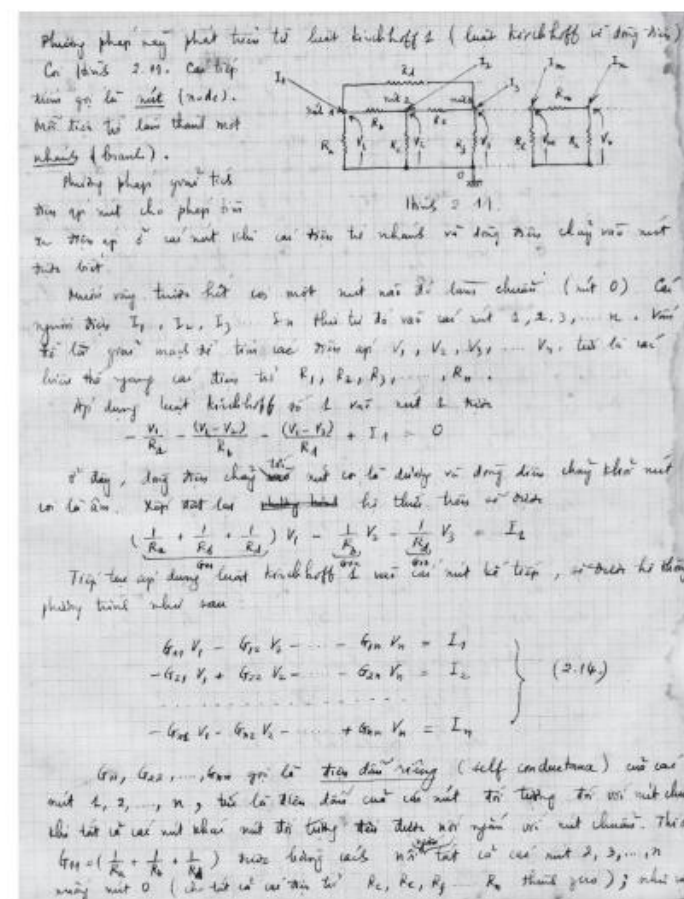 Phương pháp này phát triển từ luật kirchhoff 1 (luật kirchhoff về dòng điện)
Coi Hình 2.11. Các tiếp
điểm gọi là nút (node).
Mỗi điện trở làm thành một
nhánh (branch).
Phương pháp giải tích
điện áp nút cho phép tìm
ra điện áp ở các nút khi các điện trở nhánh và dòng điện chạy vào nút
được biết
I1 Rd I2 I3 Im In
nút 1 nút 2 nút 3
Rb Rm
Ra V1 Rc V2 V3 Vm Vn
0
Hình 2.11.
Muốn vậy trước hết coi một nút nào đó làm chuẩn (nút 0) Các
nguồn điện I1, I2, I3 ... In thứ tự đổ vào các nút 1, 2, 3, ... n. Vấn
đề là giải mạch để tìm các điện áp V1, V2, V3, .... Vn. tức là các
hiệu thế ngang các điện trở R1, R2, R3, ....., Rn.
Áp dụng luật kirchhoff số 1 vào nút 1 được
- V1/Ra - (V1-V2)/Rb - (V1-V3)/Rd + I1 = 0
ở đây, dòng điện chạy tới nút coi là dương và dòng điện chạy khỏi nút
coi là âm. Xếp đặt lại hệ thức trên sẽ được
(1/Ra + 1/Rb + 1/Rd) V1 - 1/Rb V2 - 1/Rd V3 = I1
G11 G12 G13
Tiếp tục áp dụng luật kirchhoff 1 vào các nút kế tiếp, sẽ được hệ thống
phương trình như sau:
G11 V1 - G12 V2 - ..... - G1n Vn = I1
-G21 V1 + G22 V2 - ..... - G2n Vn = I2
(2.14.)
- Gn1 V1 - Gn2 V2 - ..... + Gnn Vn = In
G11, G22, ..., Gnn gọi là điện dẫn riêng (self conductance) của các
nút 1, 2, ..., n, tức là điện dẫn của các nút đối tượng đối với nút chuẩn
khi tất cả các nút khác nút đối tượng đều được nối ngắn với nút chuẩn. Thí
G11 = (1/Ra + 1/Rb + 1/Rd) được bằng cách nối ngắn tất cả các nút 2, 3, ..., n
xuống nút 0 (cho tất cả các điện trở Rc, Re, Rf ... Rn thành zero); như